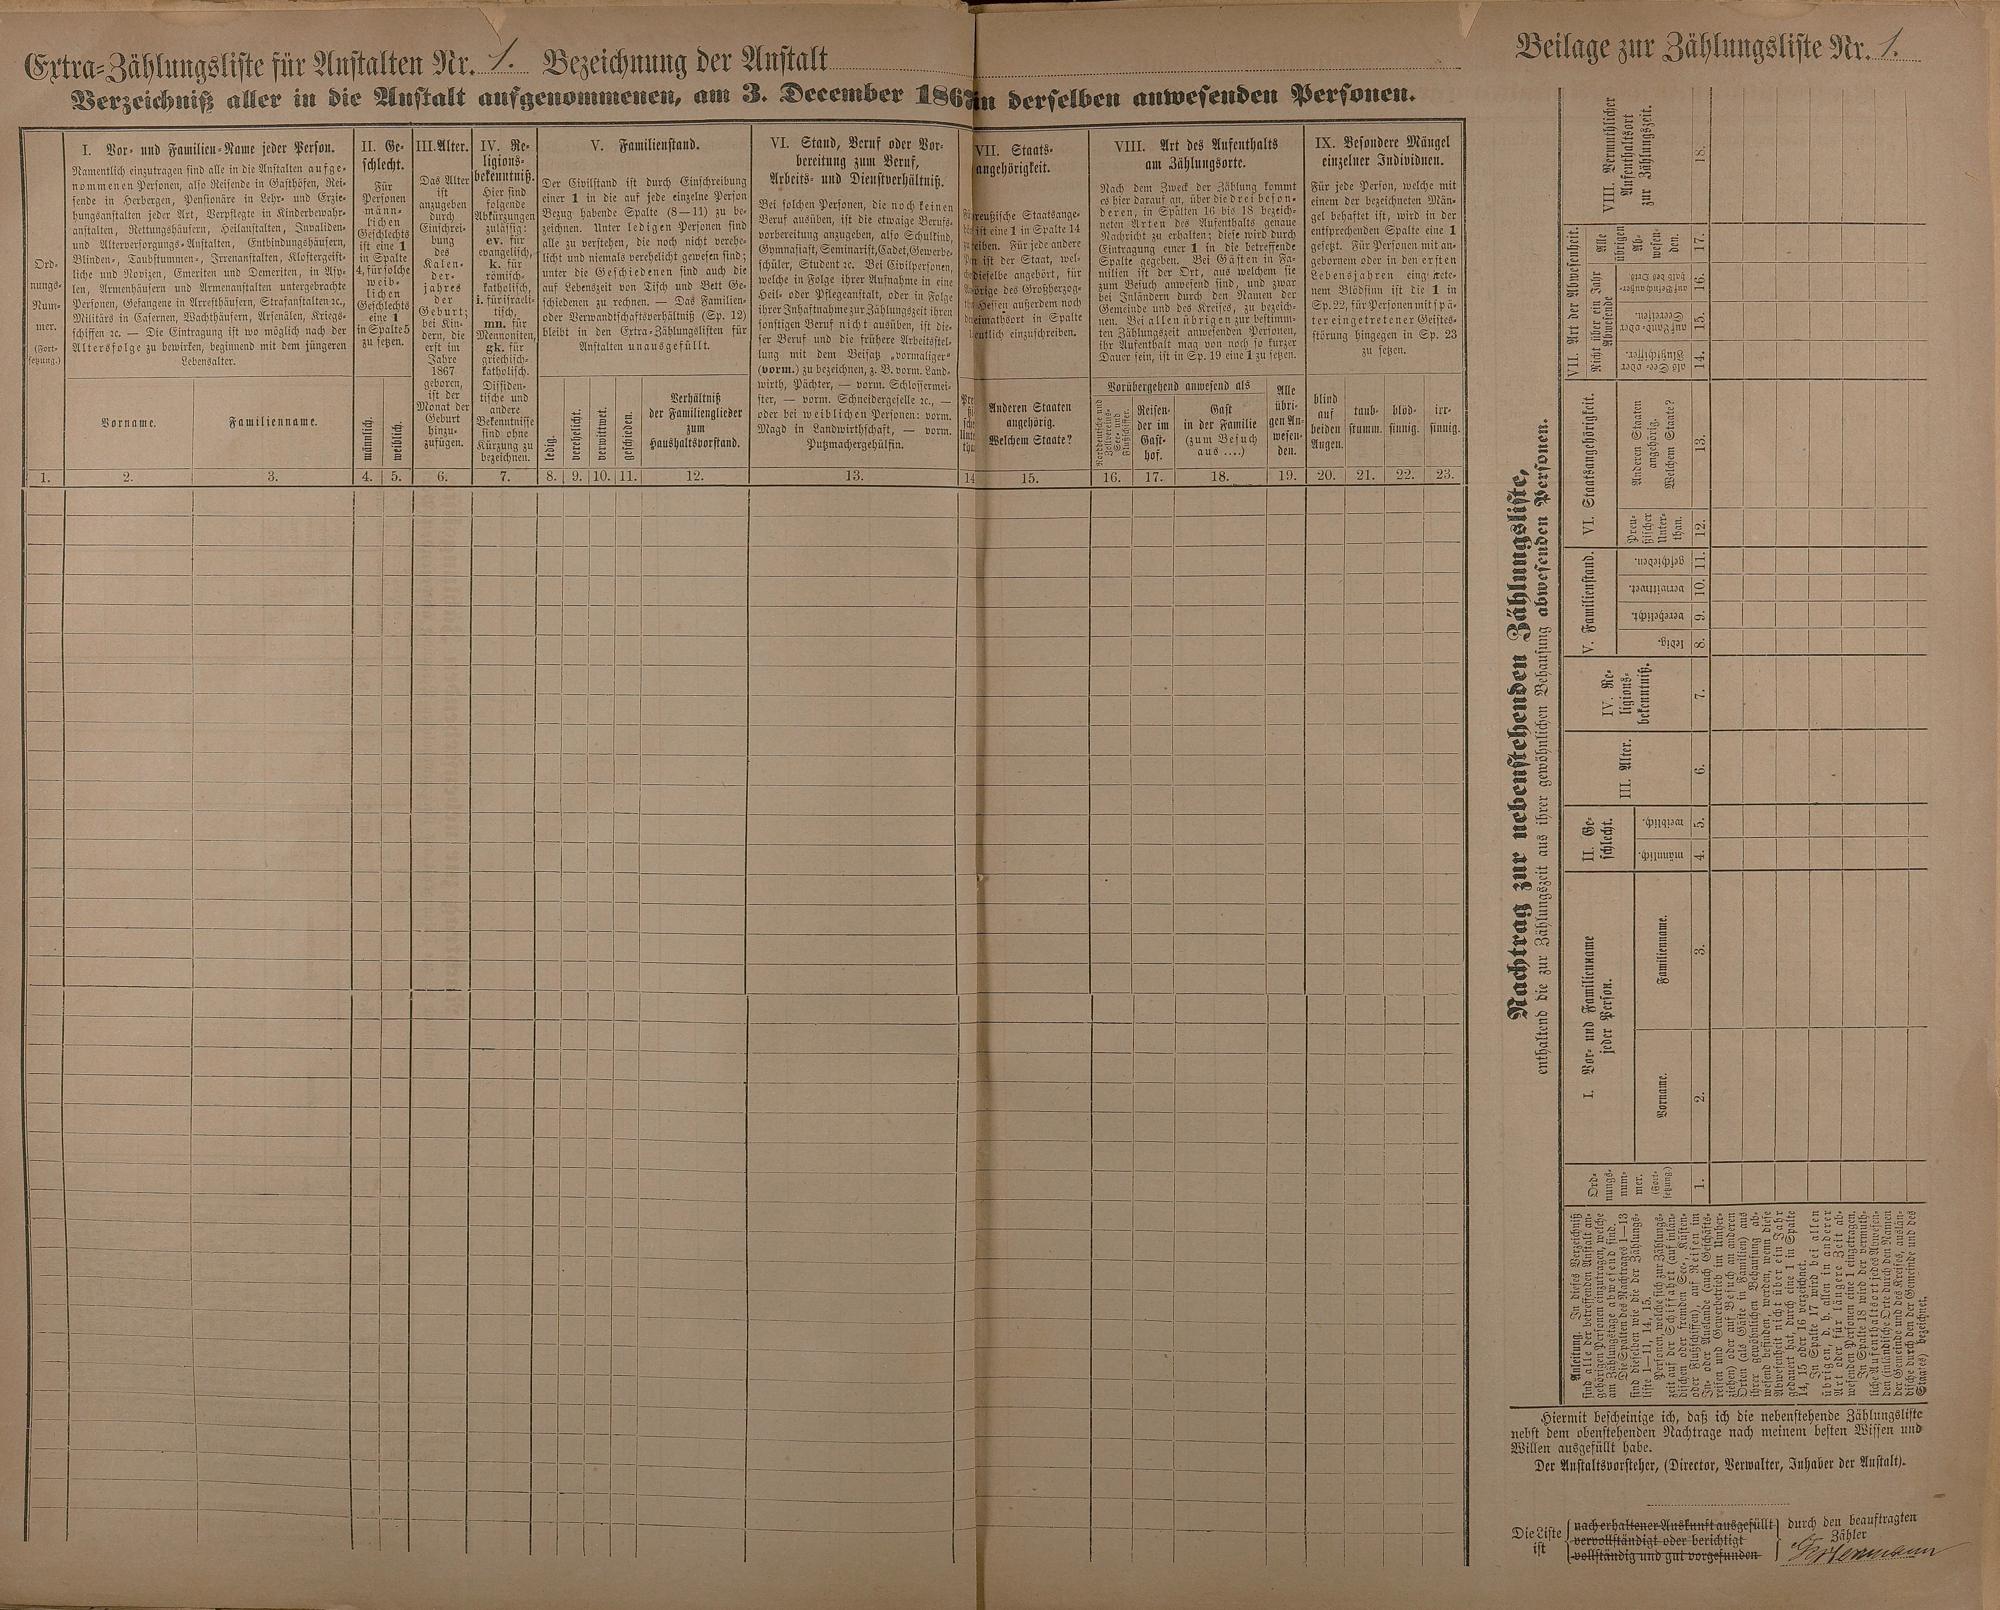 Extra-Zählungsliste für Anstalten Nr. 1. Bezeichnung der Anstalt
Verzeichniß aller in die Anstalt aufgenommenen, am 3. December 1867 in derselben anwesenden Personen.
Ord-
nungs-
Num-
mer.
(Fort-
setzung.)
I. Vor- und Familien-Name jeder Person.
Namentlich einzutragen sind alle in die Anstalten aufge-
nommenen Personen, also Reisende in Gasthöfen, Rei-
sende in Herbergen, Pensionäre in Lehr- und Erzie-
hungsanstalten jeder Art, Verpflegte in Kinderbewahr-
anstalten, Rettungshäusern, Heilanstalten, Invaliden-
und Altersversorgungs-Anstalten, Entbindungshäusern,
Blinden-, Taubstummen-, Irrenanstalten, Klostergeist-
liche und Novizen, Emeriten und Demeriten, in Asy-
len, Armenhäusern und Armenanstalten untergebrachte
Personen, Gefangene in Arresthäusern, Strafanstalten ꝛc.,
Militärs in Casernen, Wachthäusern, Arsenälen, Kriegs-
schiffen ꝛc. — Die Eintragung ist wo möglich nach der
Altersfolge zu bewirken, beginnend mit dem jüngeren
Lebensalter.
Vorname.
Familienname.
II. Ge-
schlecht.
Für
Personen
männ-
lichen
Geschlechts
ist eine 1
in Spalte
4, für solche
weib-
lichen
Geschlechts
eine 1
in Spalte 5
zu setzen.
männlich.
weiblich.
III. Alter.
Das Alter
ist
anzugeben
durch
Einschrei-
bung
des
Kalen-
der-
jahres
der
Geburt;
bei Kin-
dern, die
erst im
Jahre
1867
geboren,
ist der
Monat der
Geburt
hinzu-
zufügen.
IV. Re-
ligions-
bekenntniß.
Hier sind
folgende
Abkürzungen
zulässig:
ev. für
evangelisch,
k. für
römisch-
katholisch,
i. für israeli-
tisch,
mn. für
Mennoniten,
gk. für
griechisch-
katholisch.
Dissiden-
tische und
andere
Bekenntnisse
sind ohne
Kürzung zu
bezeichnen.
V. Familienstand.
Der Civilstand ist durch Einschreibung
einer 1 in die auf jede einzelne Person
Bezug habende Spalte (8—11) zu be-
zeichnen. Unter ledigen Personen sind
alle zu verstehen, die noch nicht verehe-
licht und niemals verehelicht gewesen sind;
unter die Geschiedenen sind auch die
auf Lebenszeit von Tisch und Bett Ge-
schiedenen zu rechnen. — Das Familien-
oder Verwandtschaftsverhältniß (Sp. 12)
bleibt in den Extra-Zählungslisten für
Anstalten unausgefüllt.
ledig.
verehelicht.
verwittwet.
geschieden.
Verhältniß
der Familienglieder
zum
Haushaltsvorstand.
VI. Stand, Beruf oder Vor-
bereitung zum Beruf,
Arbeits- und Dienstverhältniß.
Bei solchen Personen, die noch keinen
Beruf ausüben, ist die etwaige Berufs-
vorbereitung anzugeben, also Schulkind,
Gymnasiast, Seminarist, Cadet, Gewerbe-
schüler, Student ꝛc. Bei Civilpersonen,
welche in Folge ihrer Aufnahme in eine
Heil- oder Pflegeanstalt, oder in Folge
ihrer Inhaftnahme zur Zählungszeit ihren
sonstigen Beruf nicht ausüben, ist die-
ser Beruf und die frühere Arbeitsstel-
lung mit dem Beisatz „vormaliger“
(vorm.) zu bezeichnen, z. B. vorm. Land-
wirth, Pächter, — vorm. Schlossermei-
ster, — vorm. Schneidergeselle ꝛc., —
oder bei weiblichen Personen: vorm.
Magd in Landwirthschaft, — vorm.
Putzmachergehülfin.
VII. Staats-
angehörigkeit.
preußische Staatsange-
ist eine 1 in Spalte 14
Für jede andere
ist der Staat, wel-
dieselbe angehört, für
des Großherzog-
Hessen außerdem noch
Heimathsort in Spalte
einzuschreiben.
Anderen Staaten
angehörig.
Welchem Staate?
VIII. Art des Aufenthalts
am Zählungsorte.
Nach dem Zweck der Zählung kommt
es hier darauf an, über die drei beson-
deren, in Spalten 16 bis 18 bezeich-
neten Arten des Aufenthalts genaue
Nachricht zu erhalten; diese wird durch
Eintragung einer 1 in die betreffende
Spalte gegeben. Bei Gästen in Fa-
milien ist der Ort, aus welchem sie
zum Besuch anwesend sind, und zwar
bei Inländern durch den Namen der
Gemeinde und des Kreises, zu bezeich-
nen. Bei allen übrigen zur bestimm-
ten Zählungszeit anwesenden Personen,
ihr Aufenthalt mag von noch so kurzer
Dauer sein, ist in Sp. 19 eine 1 zu setzen.
Vorübergehend anwesend als
Norddeutsche und
Zollvereins-
See- und
Flußschiffer.
Reisen-
der im
Gast-
hof.
Gast
in der Familie
(zum Besuch
aus ....)
Alle
übri-
gen An-
wesen-
den.
IX. Besondere Mängel
einzelner Individuen.
Für jede Person, welche mit
einem der bezeichneten Män-
gel behaftet ist, wird in der
entsprechenden Spalte eine 1
gesetzt. Für Personen mit an-
gebornem oder in den ersten
Lebensjahren eingetrete-
nem Blödsinn ist die 1 in
Sp. 22, für Personen mit spä-
ter eingetretener Geistes-
störung hingegen in Sp. 23
zu setzen.
blind
auf
beiden
Augen.
taub-
stumm.
blöd-
sinnig.
irr-
sinnig.
1. 2. 3. 4. 5. 6. 7. 8. 9. 10. 11. 12. 13. 14 15. 16. 17. 18. 19. 20. 21. 22. 23.
Beilage zur Zählungsliste Nr. 1.
Nachtrag zur nebenstehenden Zählungsliste,
enthaltend die zur Zählungszeit aus ihrer gewöhnlichen Behausung abwesenden Personen.
Anleitung. In dieses Verzeichniß
sind alle der betreffenden Anstalt an-
gehörigen Personen einzutragen, welche
am Zählungstage abwesend sind.
Die Spalten des Nachtrages 1—13
sind dieselben wie die der Zählungs-
liste 1—11, 14, 15.
Personen, welche sich zur Zählungs-
zeit auf der Schifffahrt (auf inlän-
dischen oder fremden See-, Küsten-
oder Flußschiffen), auf Reisen im
In- oder Auslande (auch Geschäfts-
reisen und Gewerbetrieb im Umher-
ziehen) oder auf Besuch an anderen
Orten (als Gäste in Familien) aus
ihrer gewöhnlichen Behausung ab-
wesend befinden, werden, wenn diese
Abwesenheit nicht über ein Jahr
gedauert hat, durch eine 1 in Spalte
14, 15 oder 16 verzeichnet.
In Spalte 17 wird bei allen
übrigen, d. h. allen in anderer
Art oder für längere Zeit ab-
wesenden Personen eine 1 eingetragen.
In Spalte 18 wird der vermuth-
liche Aufenthaltsort jedes Abwesen-
den (inländische Orte durch den Namen
der Gemeinde und des Kreises, auslän-
dische durch den der Gemeinde und des
Staates) bezeichnet.
Ord-
nungs-
num-
mer.
(Fort-
setzung.)
I. Vor- und Familienname
jeder Person.
Vorname.
Familienname.
II. Ge-
schlecht.
männlich.
weiblich.
III. Alter.
IV. Re-
ligions-
bekenntniß.
V. Familienstand.
ledig.
verehelicht.
verwittwet.
geschieden.
VI. Staatsangehörigkeit.
Preu-
ßischer
Unter-
than.
Anderen Staaten
angehörig.
Welchem Staate?
VII. Art der Abwesenheit.
Nicht über ein Jahr
Abwesende
als See- oder
Flußschiffer.
auf Land- oder
Seereisen.
auf Besuch außer-
halb des Orts.
Alle
übrigen
Ab-
wesen-
den.
VIII. Vermuthlicher
Aufenthaltsort
zur Zählungszeit.
1. 2. 3. 4. 5. 6. 7. 8. 9. 10. 11. 12. 13. 14. 15. 16. 17. 18.
Hiermit bescheinige ich, daß ich die nebenstehende Zählungsliste
nebst dem obenstehenden Nachtrage nach meinem besten Wissen und
Willen ausgefüllt habe.
Der Anstaltsvorsteher, (Director, Verwalter, Inhaber der Anstalt).
Die Liste
ist
nach erhaltener Auskunft ausgefüllt
vervollständigt oder berichtigt
vollständig und gut vorgefunden
durch den beauftragten
Zähler